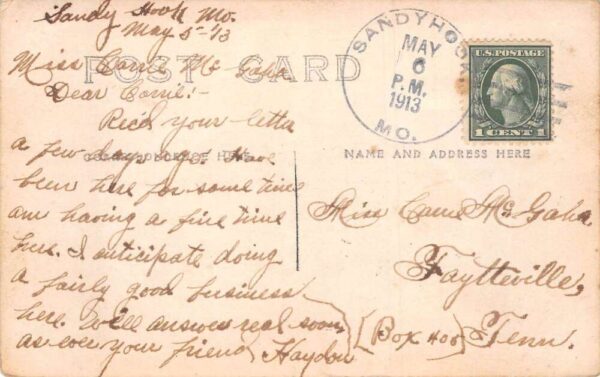 Sandy Hook Mo.
May 5-13
Miss Carrie McGaha
POST CARD
Dear Carrie:-
Rec'd your letter
a few days ago. Have
been here for some time
am having a fine time
here. I anticipate doing
a fairly good business
here. We'll answer real soon
as ever your friend, Haydon
SANDYHOOK
MAY
6
P.M.
1913
MO.
U.S. POSTAGE
1 CENT 1
NAME AND ADDRESS HERE
Miss Carrie McGaha
Faytteville,
[Box 406] Tenn.